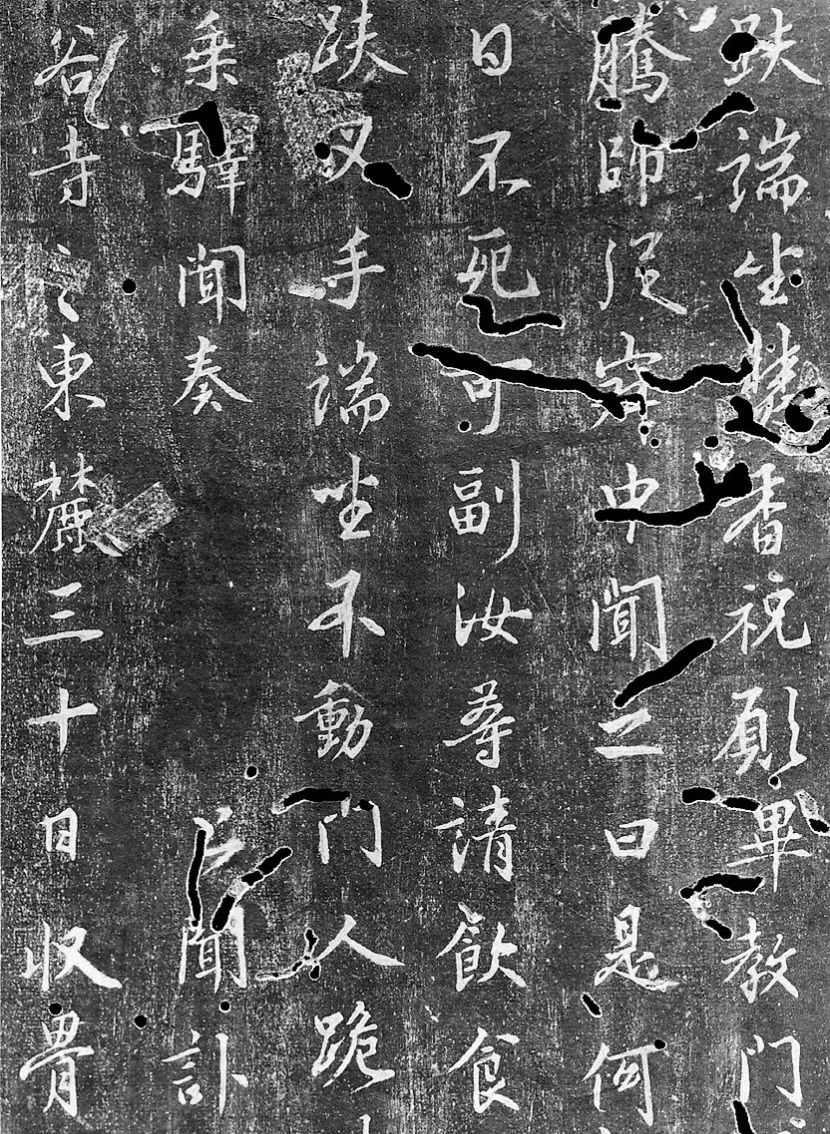 趺端坐焚香祝願畢教門
騰師從中聞曰是何
日不死可副汝等請飲食
趺叉手端坐不動門人跪
乘驛聞奏 聞訃
谷寺之東麓三十日收骨